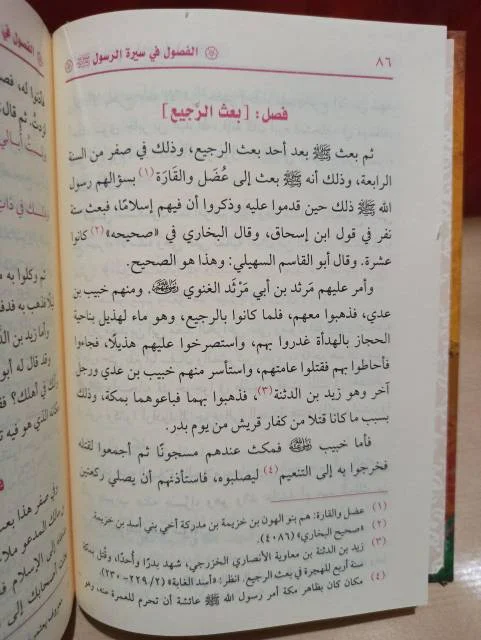 ٨٦
الفصول في سيرة الرسول ﷺ
فصل: [بعث الرَّجيع]
ثم بعث ﷺ بعد أحد بعث الرجيع، وذلك في صفر من السنة
الرابعة، وذلك أنه ﷺ بعث إلى عُضَل والقَارَة(١) بسؤالهم رسول
الله ﷺ ذلك حين قدموا عليه وذكروا أن فيهم إسلامًا، فبعث ستة
نفر في قول ابن إسحاق، وقال البخاري في «صحيحه»(٢) كانوا
عشرة. وقال أبو القاسم السهيلي: وهذا هو الصحيح.
وأمر عليهم مَرثد بن أبي مَرْثَد الغنوي رضي الله عنه. ومنهم خبيب بن
عدي، فذهبوا معهم، فلما كانوا بالرجيع، وهو ماء لهذيل بناحية
الحجاز بالهدأة غدروا بهم، واستصرخوا عليهم هذيلًا، فجاءوا
فأحاطوا بهم فقتلوا عامتهم، واستأسر منهم خبيب بن عدي ورجل
آخر وهو زيد بن الدثنة(٣)، فذهبوا بهما فباعوهما بمكة، وذلك
بسبب ما كانا قتلا من كفار قريش من يوم بدر.
فأما خبيب رضي الله عنه فمكث عندهم مسجونًا ثم أجمعوا لقتله
فخرجوا به إلى التنعيم(٤) ليصلبوه، فاستأذنهم أن يصلي ركعتين
(١) عضل والقارة: هم بنو الهون بن خزيمة بن مدركة أخي بني أسد بن خزيمة.
(٢) «صحيح البخاري» (٤٠٨٦)
(٣) زيد بن الدثنة بن معاوية الأنصاري الخزرجي، شهد بدرًا وأحدًا، وقُتل بمكة
سنة أربع للهجرة في بعث الرجيع. انظر: «أسد الغابة» (٢/ ٢٢٩-٢٣٠)
(٤) مكان كان بظاهر مكة أمر رسول الله ﷺ عائشة أن تحرم للعمرة منه، وهو